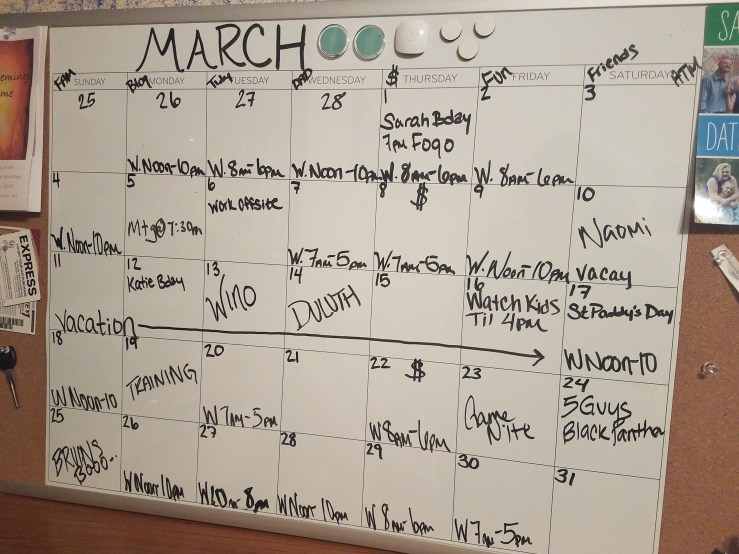 MARCH
FAM
SUNDAY
MONDAY
TUESDAY
WEDNESDAY
$
THURSDAY
Fun
FRIDAY
Friends
SATURDAY
25
26
W. Noon-10pm
27
W. 8am-6pm
28
W. Noon-10pm
1
Sarah Bday
7pm Fogo
W. 8am-6pm
2
W. 8am-6pm
3
4
W. Noon-10pm
5
Mtg@7:30pm
6
Work offsite
7
W. 7am-5pm
8
$
W. 7am-5pm
9
W. Noon-10pm
10
Naomi
Vacay
11
Vacation
12
Katie Bday
13
14
DULUTH
15
16
Watch Kids
Til 4pm
17
St Paddy's Day
W Noon-10
18
W Noon-10
19
TRAINING
20
W 7am-5pm
21
22
$
W 8am-6pm
23
Game
Nite
24
5 Guys
Black Panther
25
26
W Noon 10pm
27
28
W Noon 10pm
29
W 8am 6pm
30
W 7am-5pm
31
EXPRESS
SA
DAT